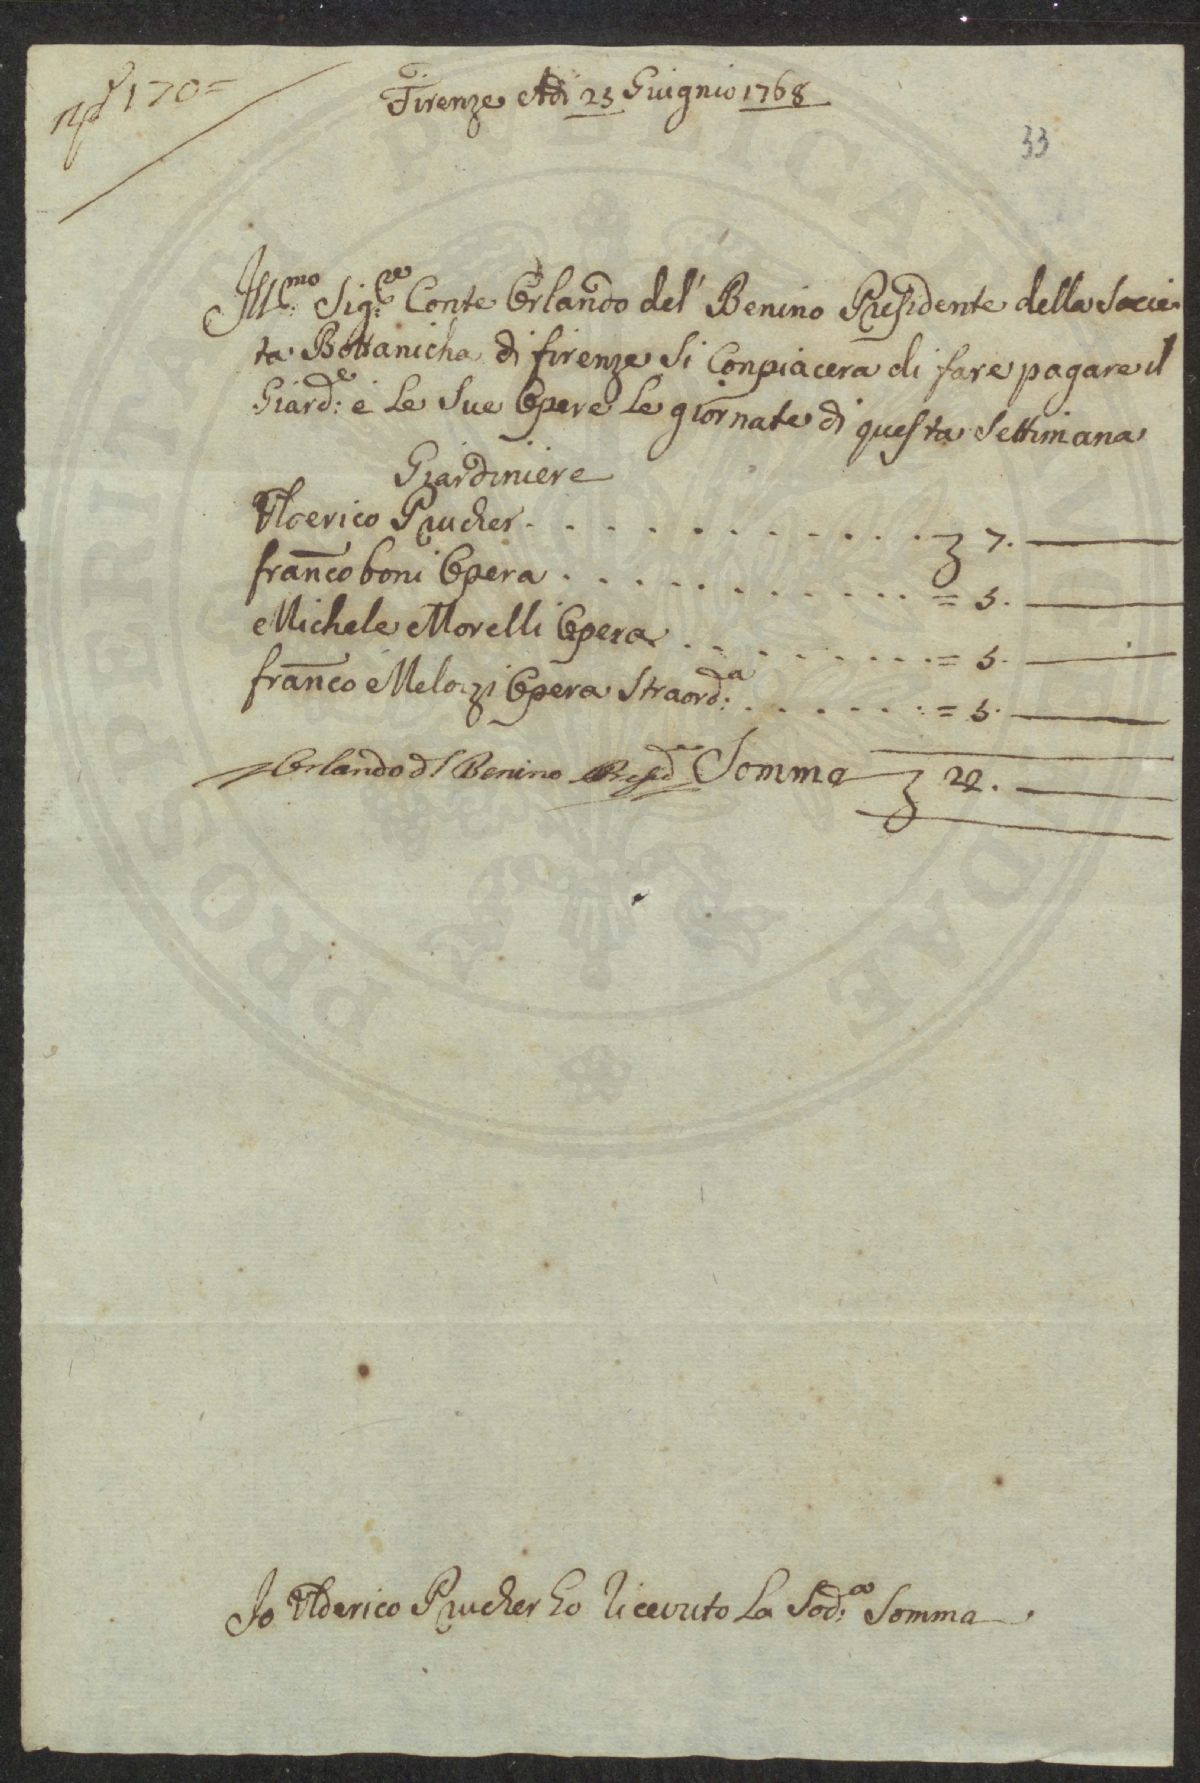 170=
Firenze Adi 25 Giugnio 1768
33
Ill:mo Sig:re Conte Orlando del' Benino Presidente della Socie-
ta Bottanicha di firenze si Conpiacera di fare pagare il
Giard:e e le sue Opere le giornate di questa Settimana
Giardiniere
Ulderico Prucher . . . . . . . . . . 7. —
fran̄co boni Opera . . . . . . . . . . = 5. —
Michele Morelli Opera . . . . . . . . = 5. —
fran̄co Melozzi Opera Straord:a . . . . . . = 5. —
Orlando dl Benino Presid.e Somma 22. —
Io Ulderico Prucher ho Ricevuto la Sod:a Somma
PUBLICAE
PROSPERITATI